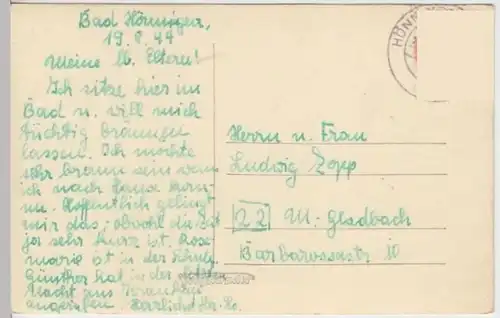 Bad Hönningen,
19.8.44
Meine lb. Eltern!
Ich sitze hier im
Bad u. will mich
tüchtig braungen
lassen. Ich möchte
sehr braun sein wenn
ich nach Hause kom-
me. Hoffentlich gelingt
mir das, obwohl die Zeit
ja sehr kurz ist. Rose-
marie ist in der Schule.
Günther hat in der letzten
Nacht aus
angerufen. Herzliche
HÖNN
Herrn u. Frau
Ludwig Zopp
22 M.-Gladbach
Barbarossastr. 10